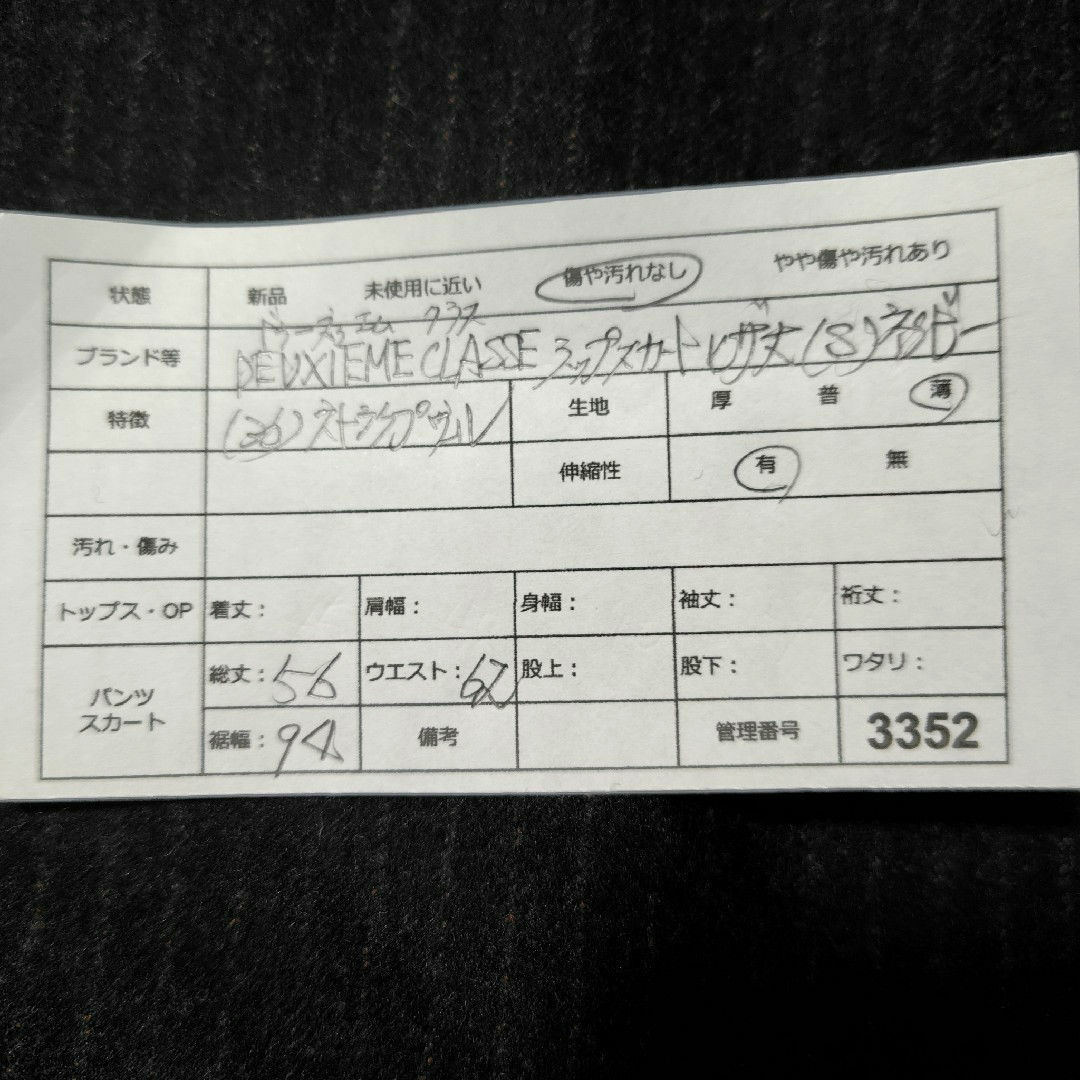 状態 新品 未使用に近い 傷や汚れなし やや傷や汚れあり
ドゥーズィエム クラス
ブランド等 DEUXIEME CLASSE ラップスカート ヒザ丈 (S) ネイビー
特徴 (36) ストライプ ウール 生地 厚 普 薄
伸縮性 有 無
汚れ・傷み
トップス・OP 着丈: 肩幅: 身幅: 袖丈: 裄丈:
パンツ スカート 総丈:56 ウエスト:62 股上: 股下: ワタリ:
裾幅:94 備考 管理番号 3352